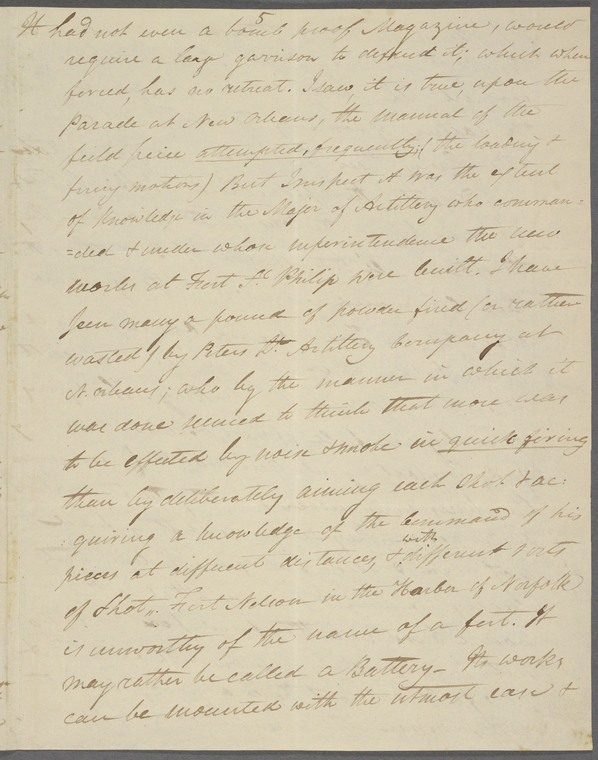 It had not even a bomb proof Magazine, would
require a large garrison to defend it; which when
forced, has no retreat. I saw, it is true, upon the
Parade at New Orleans, the manual of the
field peice attempted, frequently, (the loading &
firing motions) But I suspect it was the extent
of knowledge in the Major of Artillery who comman=
=ded & under whose superintendence the new
works at Fort St. Philip were built. I have
seen many a pound of powder fired (or rather
wasted) by Peters Lt. Artillery Company at
N. Orleans; who by the manner in which it
was done seemed to think that more was
to be effected by noise & smoke in quick firing
than by deliberately aiming each Shot & ac:
:quiring a knowledge of the command of his
pieces at different distances, & with different sorts
of Shot,. Fort Nelson in the Harbor of Norfolk
is unworthy of the name of a fort. It
may rather be called a Battery_ Its works
can be mounted with the utmost ease &